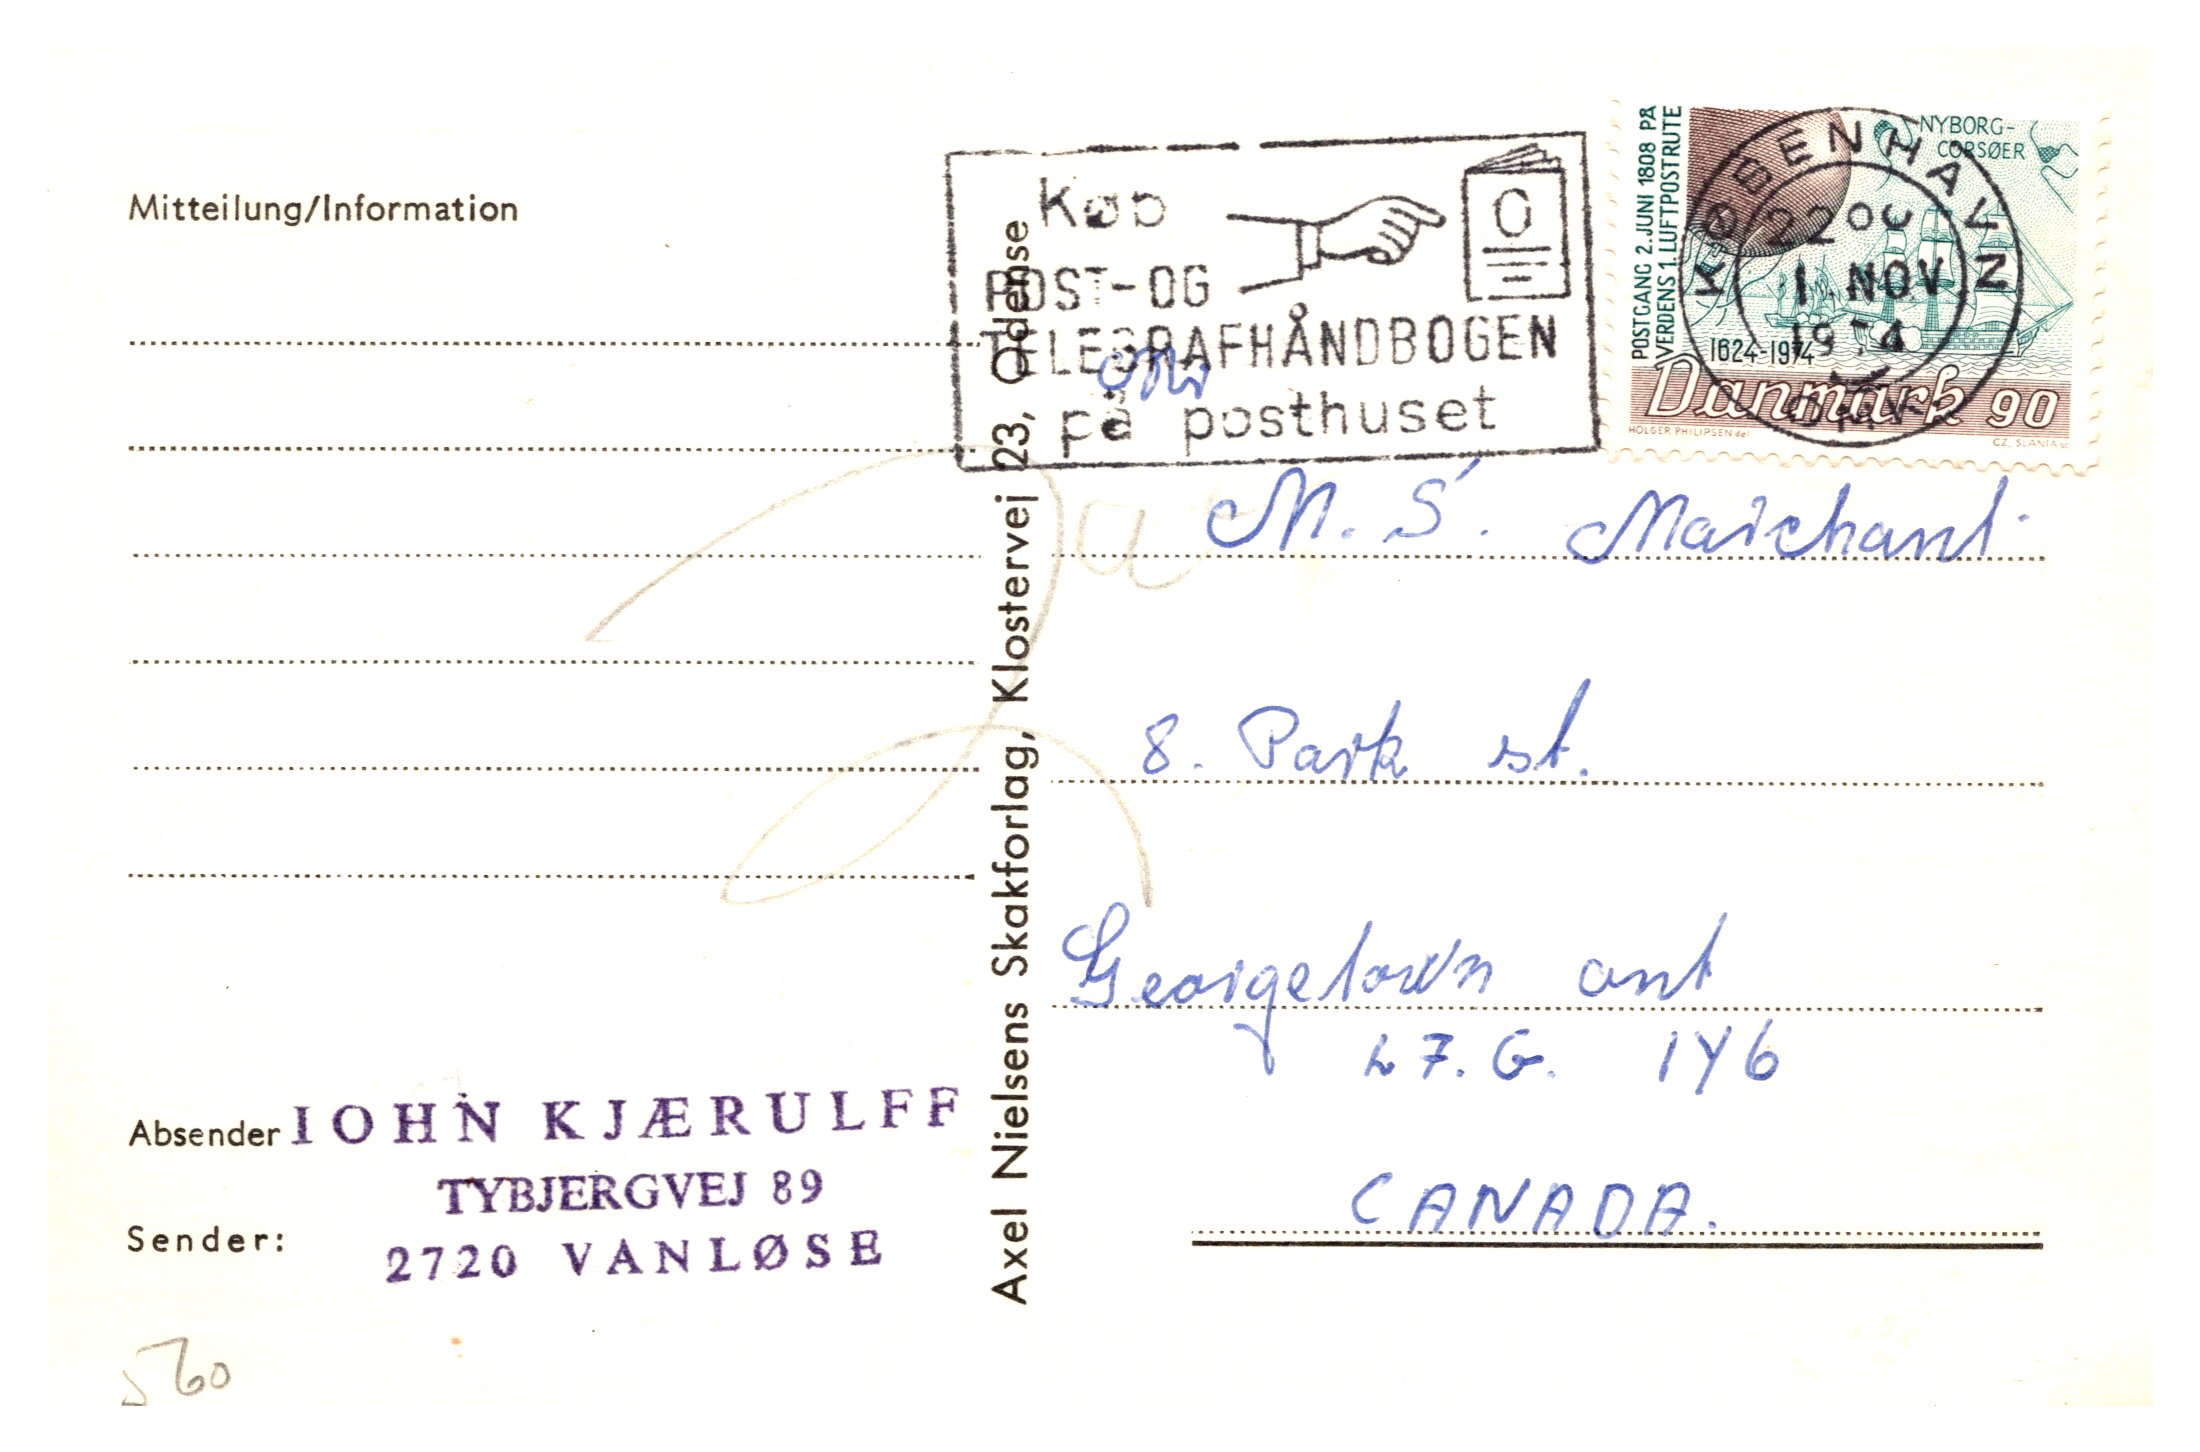 Mitteilung/Information
Køb
POST-OG
TELEGRAFHÅNDBOGEN
på posthuset
KØBENHAVN
22
1 NOV
1974
OMK.
POSTGANG 2. JUNI 1808 PÅ
VERDENS 1. LUFTPOSTRUTE
NYBORG-
CORSØER
1624-1974
Danmark 90
HOLGER PHILIPSEN del
CZ. SLANIA sc
Axel Nielsens Skakforlag, Klostervej 23, Odense
Mr
M. S. Marchant.
8. Park st.
Georgetown ont
L7.G. 1Y6
CANADA.
Absender
IOHN KJÆRULFF
TYBJERGVEJ 89
Sender:
2720 VANLØSE
560